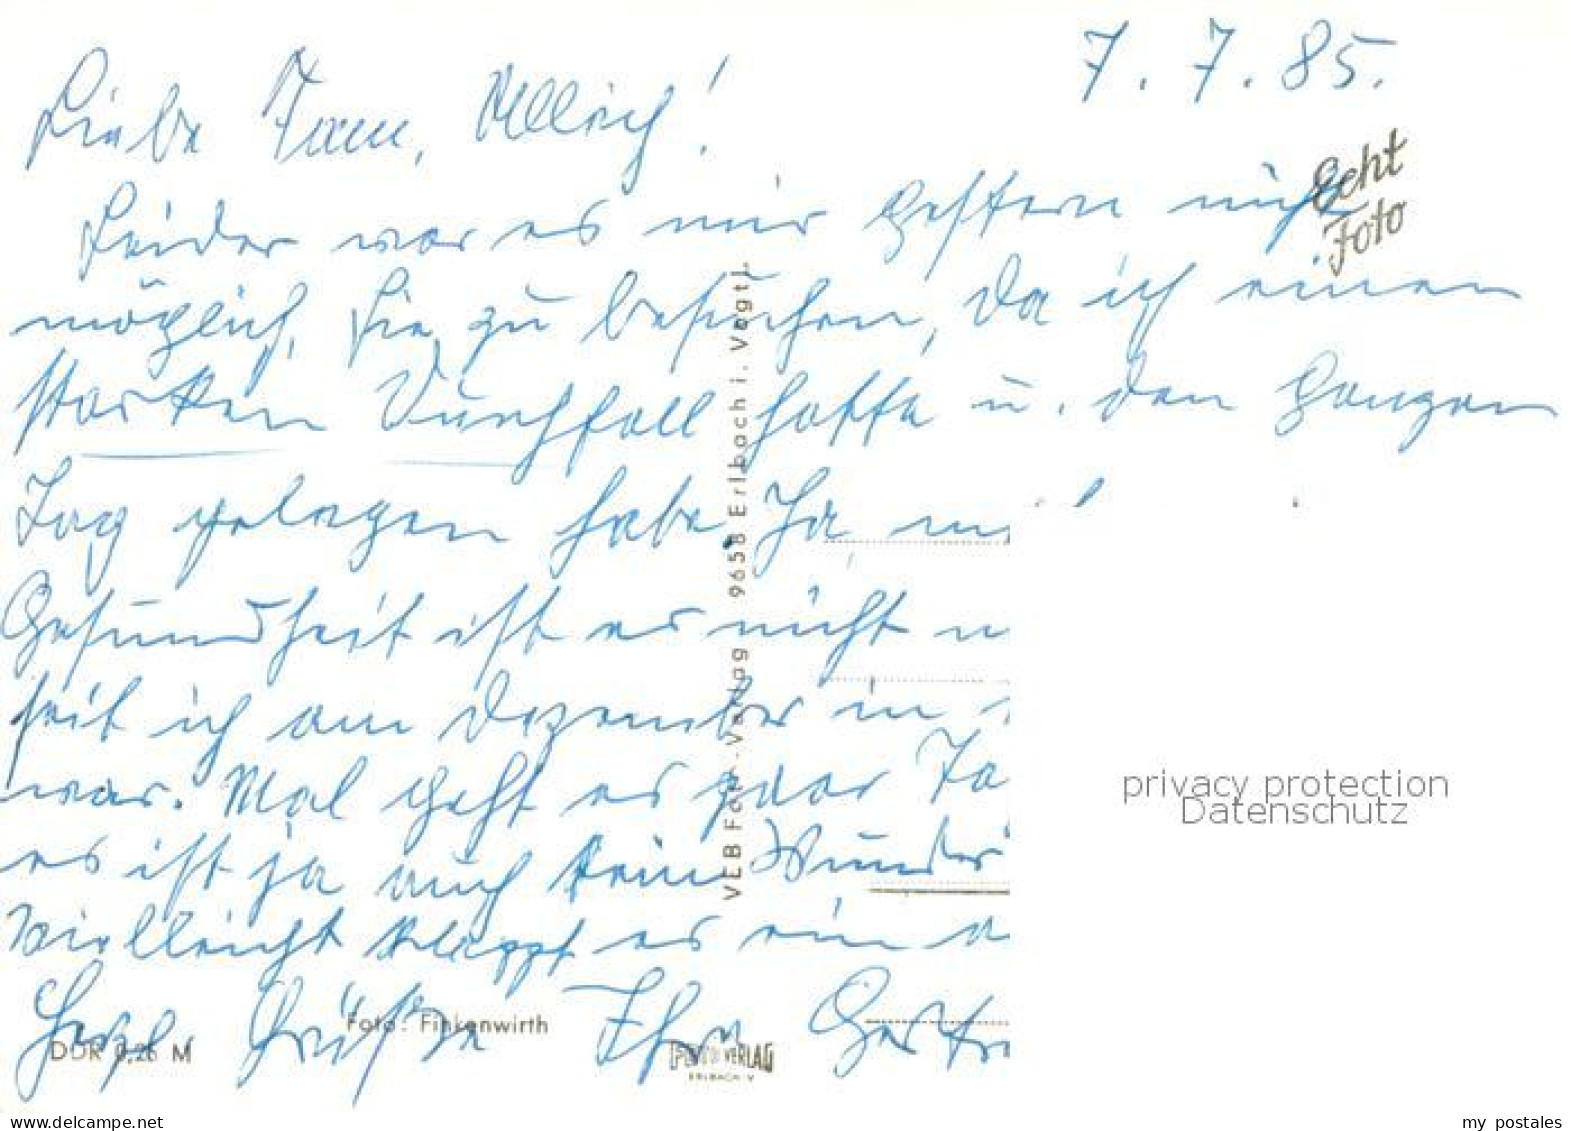 7. 7. 85.
Liebe Frau Ullrich!
Leider war es mir gestern nicht
möglich, Sie zu besuchen, da ich einen
starken Durchfall hatte u. den ganzen
Tag gelegen habe. Ja, m
Gesundheit ist es nicht m
seit ich am Dezember in
war. Mal geht es paar Ta
es ist ja auch kein Wunder
Vielleicht klappt es ein a
Herzl. Grüße Ihre Gertr
Echt
Foto
VEB Foto-Verlag 9658 Erlbach i. Vogtl.
Foto: Finkenwirth
DDR 0,26 M
FOTO VERLAG
ERLBACH V
privacy protection
Datenschutz
www.delcampe.net
my_postales